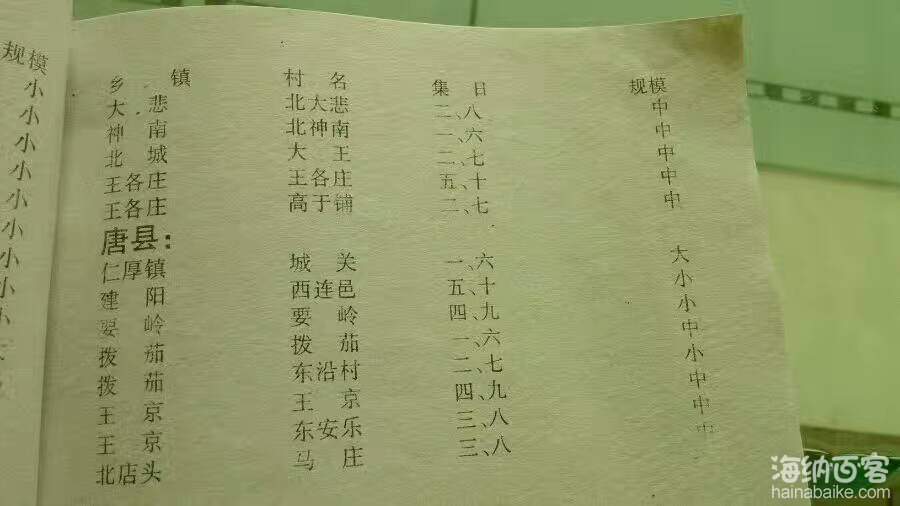 规模
小
小
小
小
小
小
小
小
小
乡镇 村名 集日 规模
大悲 北大悲 二、八 中
神南 北神南 一、六 中
北城 大王 二、七 中
王各庄 王各庄 五、十 中
王各庄 高于铺 二、七 中
唐县：
仁厚镇 城关 一、六 大
建阳 西连邑 五、十 小
要岭 要岭 四、九 小
拨茄 拨茄 一、六 中
拨茄 东沿村 二、七 小
王京 王京 四、九 中
王京 东安乐 三、八 中
北店头 马庄 三、八 中
海纳百客
hainabaike.com